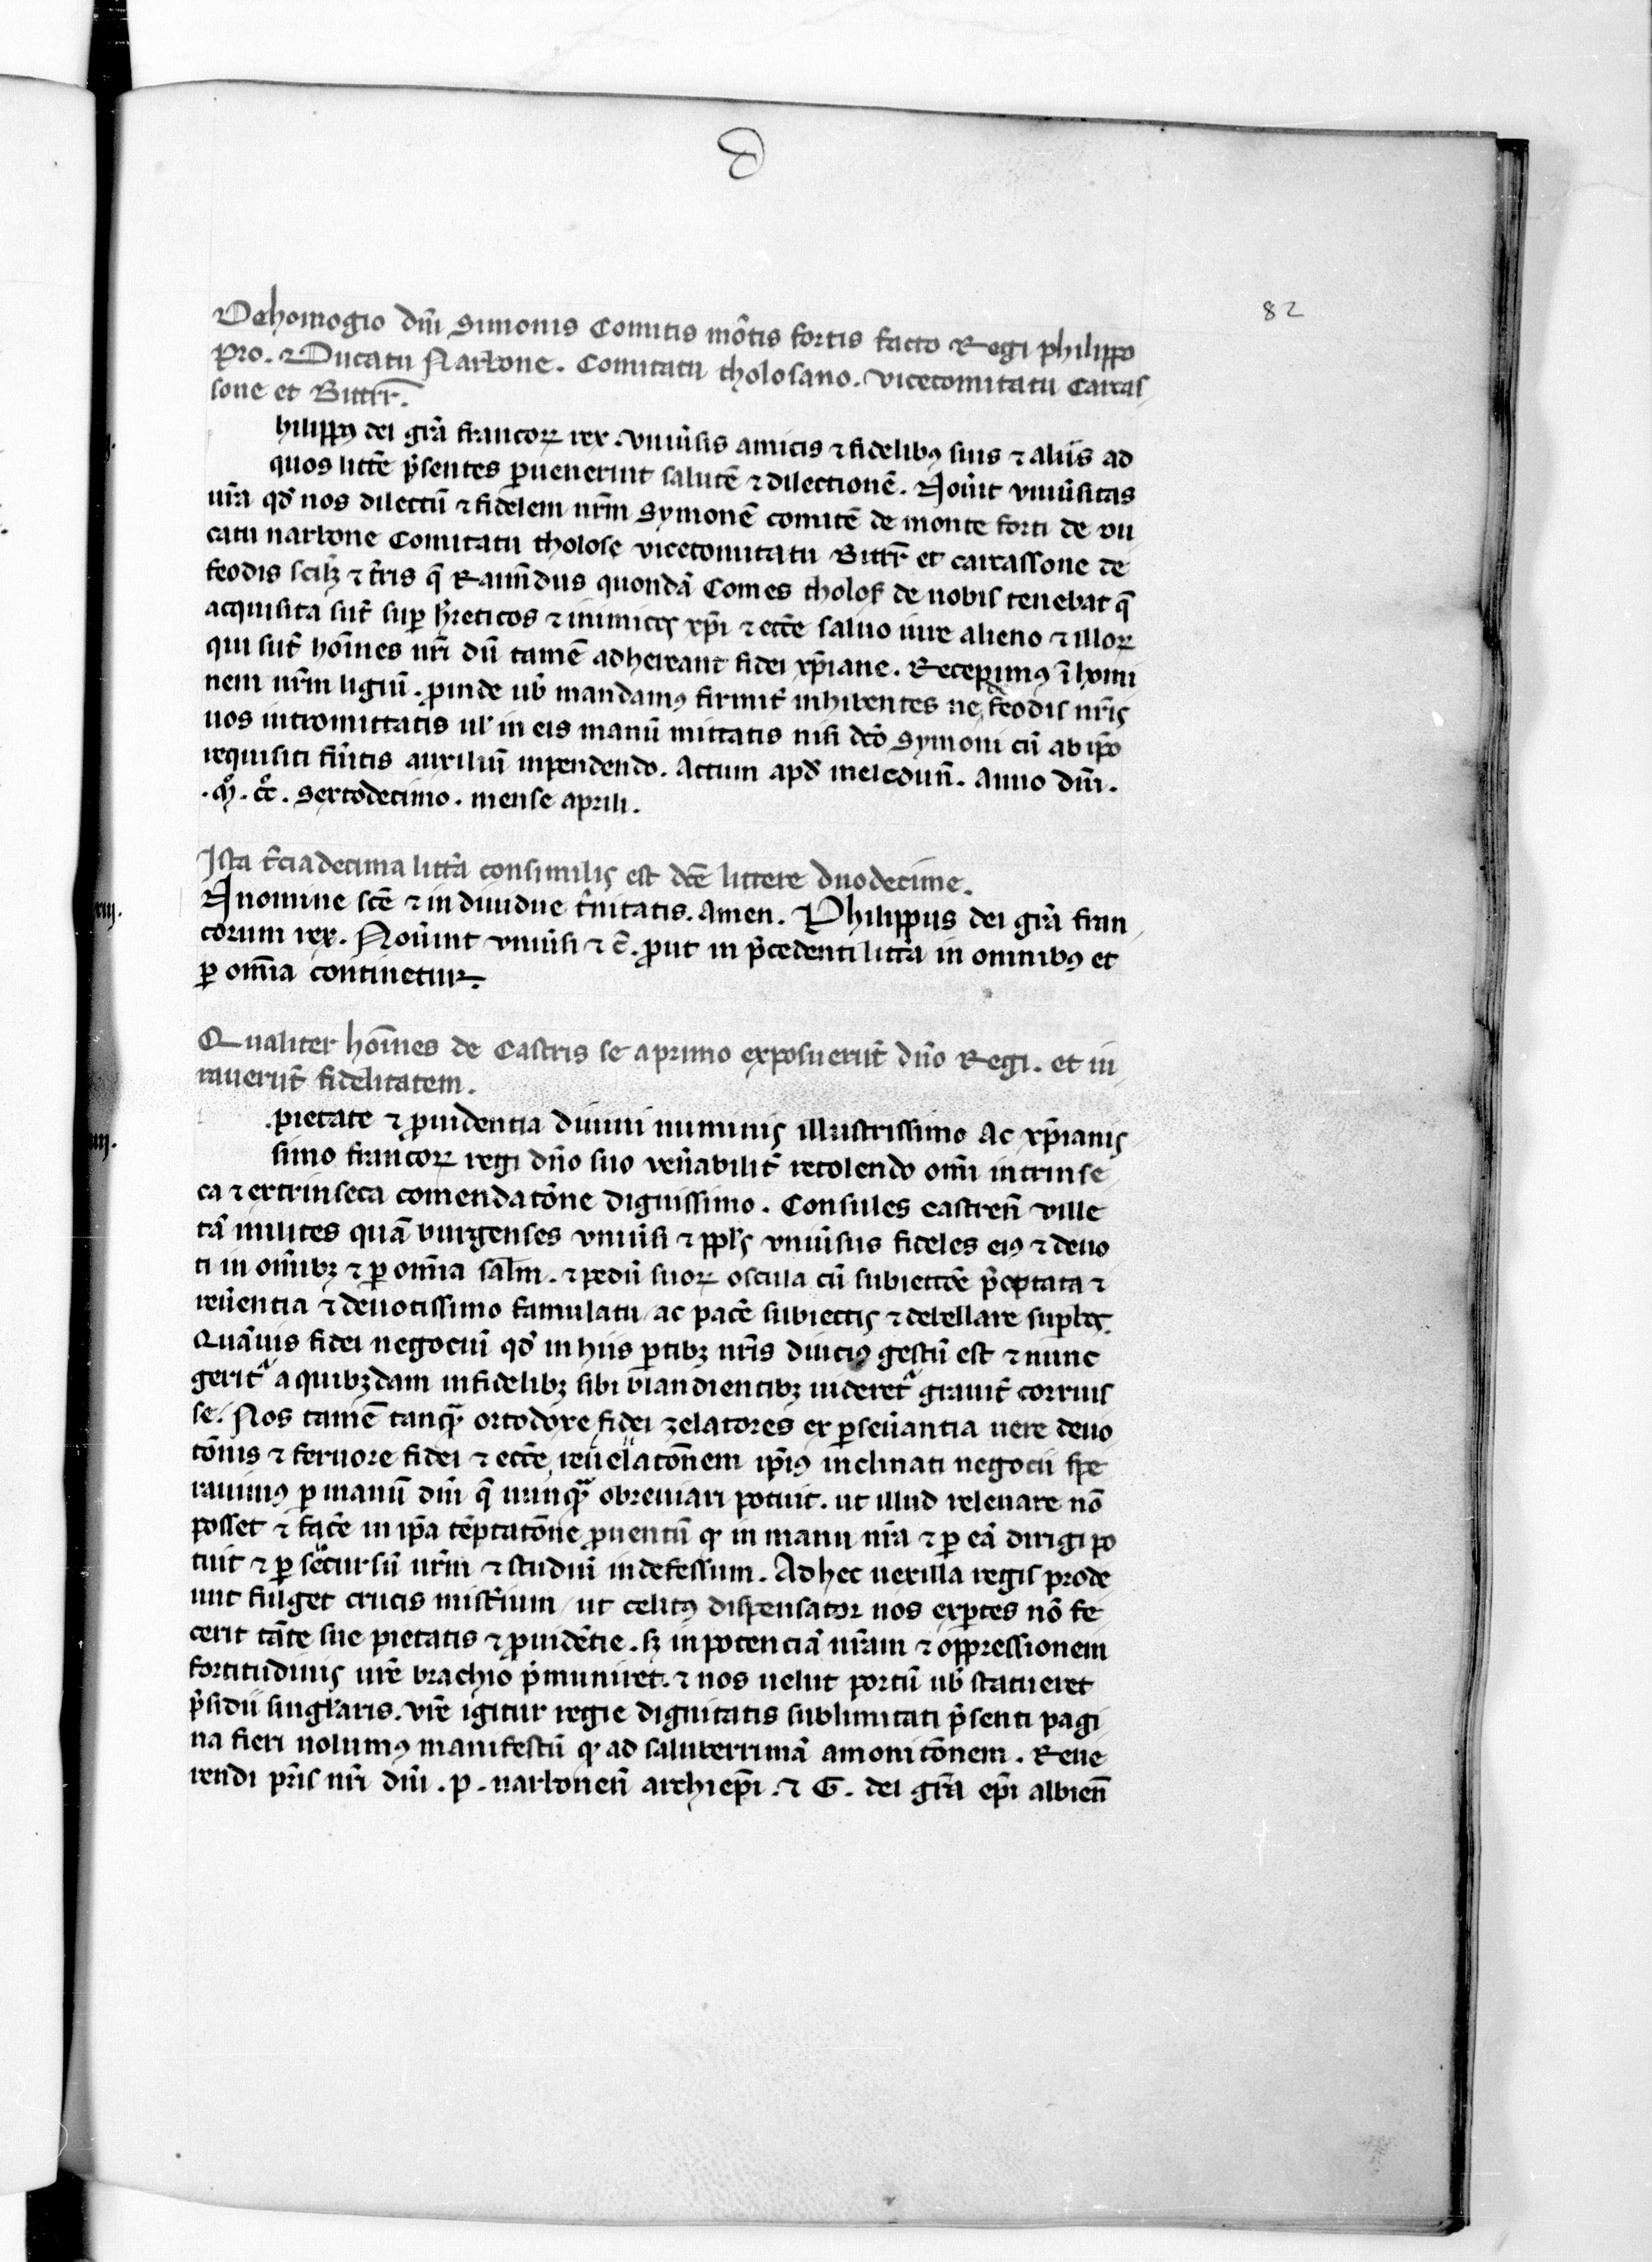 82
De homogio dñi Simonis Comitis mõtis fortis facto Regi philippo
pro. ⁊ Ducatu Narbone. Comitatu tholosano. vicecomitatu Carcas
sone et Bittrr̃.
hilippꝰ dei grã francoꝝ rex. vniũsis amicis ⁊ fidelibꝰ suis ⁊ aliis ad
quos littẽ p̃sentes ꝑuenerint salutẽ ⁊ dilectionẽ. Noũit vniũsitas
ur̃a qd̃ nos dilectũ ⁊ fidelem nr̃m Symonẽ comitẽ de monte forti de du
catu narbone Comitatu tholose vicecomitatu Bittr̃ et carcassone de
feodis scilꝫ ⁊ t̃ris q̃ Raim̃dus quondã Comes tholos̃ de nobis tenebat q̃
acquisita sũt sup̱ h̃reticos ⁊ inimicos xp̃i ⁊ ecc̃e saluo iure alieno ⁊ illoꝝ
qui sũt hoĩnes nr̃i dũ tamẽ adhereant fidei xp̃iane. Recepimus ĩ homi
nem nr̃m ligiũ. ꝓinde uob̃ mandamꝰ firmit̃ inhibentes ne de feodis nr̃is
uos intromittatis ul̃ in eis manũ mittatis nisi dc̃o Symoni cũ ab ip̃o
requisiti fũitis auxiliũ inpendendo. Actum apd̃ meledunũ. Anno dñi.
.M̊. cc̊. Sextodecimo. mense aprili.
Ista t̃ciadecima litt̃a consimilis est dc̃e littere duodecime.
In nomine sc̃e ⁊ indiuidue t̃nitatis. Amen. Philippus dei grã fran
corum rex. Noũint vniũsi ⁊ c̃. ꝓut in p̃cedenti litt̃a in omnibꝰ et
ꝑ om̃ia continetur.
Qualiter hoĩnes de Castris se a primo exposuerũt dño Regi. et iu
rauerũt fidelitatem.
pietate ⁊ ꝓuidentia diuini numinis illustrissimo Ac xp̃ianis
simo francoꝝ regi dño suo veñabilit̃ recolendo om̃i intrinse
ca ⁊ extrinseca comendatõne dignissimo. Consules castreñ ville
tã milites quã burgenses vniũsi ⁊ pp̃ls vniũsus fideles eiꝰ ⁊ deuo
ti in om̃ibꝫ ⁊ ꝑ om̃ia sal̃m. ⁊ pedũ suoꝝ oscula cũ subiectõe p̃optata ⁊
reũentia ⁊ deuotissimo famulatu ac pacẽ subiectis ⁊ debellare supb̃os.
Quãuis fidei negociũ qd̃ in hiis ꝑtibꝫ nr̃is diuciꝰ gestũ est ⁊ nunc
gerit᷑ a quibꝫdam infidelibꝫ sibi blandientibꝫ uideret᷑ grauit̃ corruis
se. Nos tamẽ tanq̃ ortodoxe fidei zelatores ex ꝑseũantia uere deuo
tõnis ⁊ feruore fidei ⁊ ecc̃e reuelatõnem ip̃iꝰ inclinati negocii spe
rauimꝰ ꝑ manũ dñi q̃ nunq̃ obreuiari potuit. ut illud releuare nõ
posset ⁊ facẽ in ip̃a tẽptatõne ꝓuentũ qꝛ in manu nr̃a ⁊ ꝑ eã dirigi po
tuit ⁊ ꝑ secursũ ur̃m ⁊ studiũ indefessum. Ad hec uexilla regis prode
unt fulget crucis mist̃ium ut celitꝰ dispensator nos exꝑtes nõ fe
cerit tãte sue pietatis ⁊ ꝓuidẽtie. sꝫ inpotenciã nr̃am ⁊ oppressionem
fortitudinis ur̃e brachio p̃muniret. ⁊ nos uelut portũ uob̃ statueret
p̃sidii singl̃aris. Vr̃e igitur regie dignitatis sublimitati p̃senti pagi
na fieri uolumꝰ manifestũ qꝛ ad saluberrimã amonitõnem. Reue
rendi pr̃is nr̃i dñi .p. narboneñ archiep̃i. ⁊ G. dei grã ep̃i albieñ